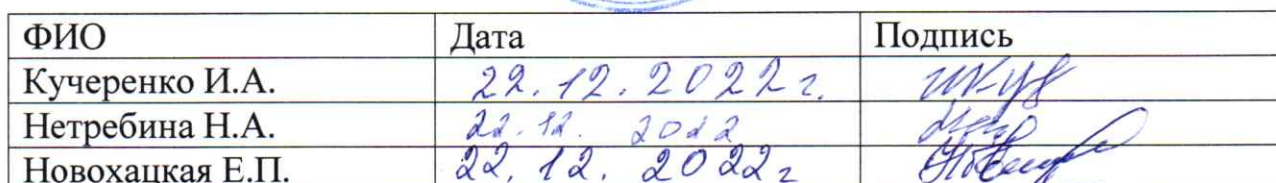 ФИО Дата Подпись
Кучеренко И.А. 22.12.2022г.
Нетребина Н.А. 22.12. 2022
Новохацкая Е.П. 22.12.2022г